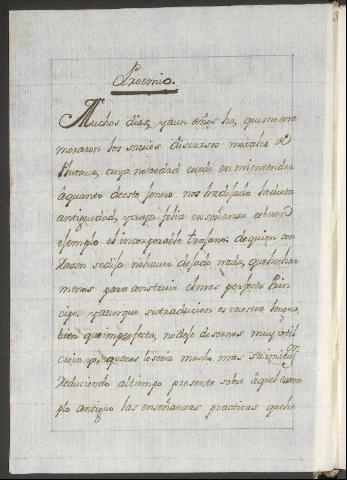 Proemio.
Muchos dias, y aun años ha, que me ena
moraron los sabios discursos morales de
Plutarco, cuya novedad excede en mi entender
à quanto de este genero nos tradujado la docta
antiguedad, y cuya feliz enseñanza es buen
ejemplo el incomparable trajano; de quien con
razon se dijo no haver dejado nada, que echar
menos para construir el mas perfecto Prin
cipe. y aunque su traducion es nuestra lengua,
bien que imperfecta, no deje de sernos muy util
creia yo, que nos lo seria mucho mas su imitaçon
reduciendo al tiempo presente sobre àquel exem
plo antiguo las enseñanzas practicas que he